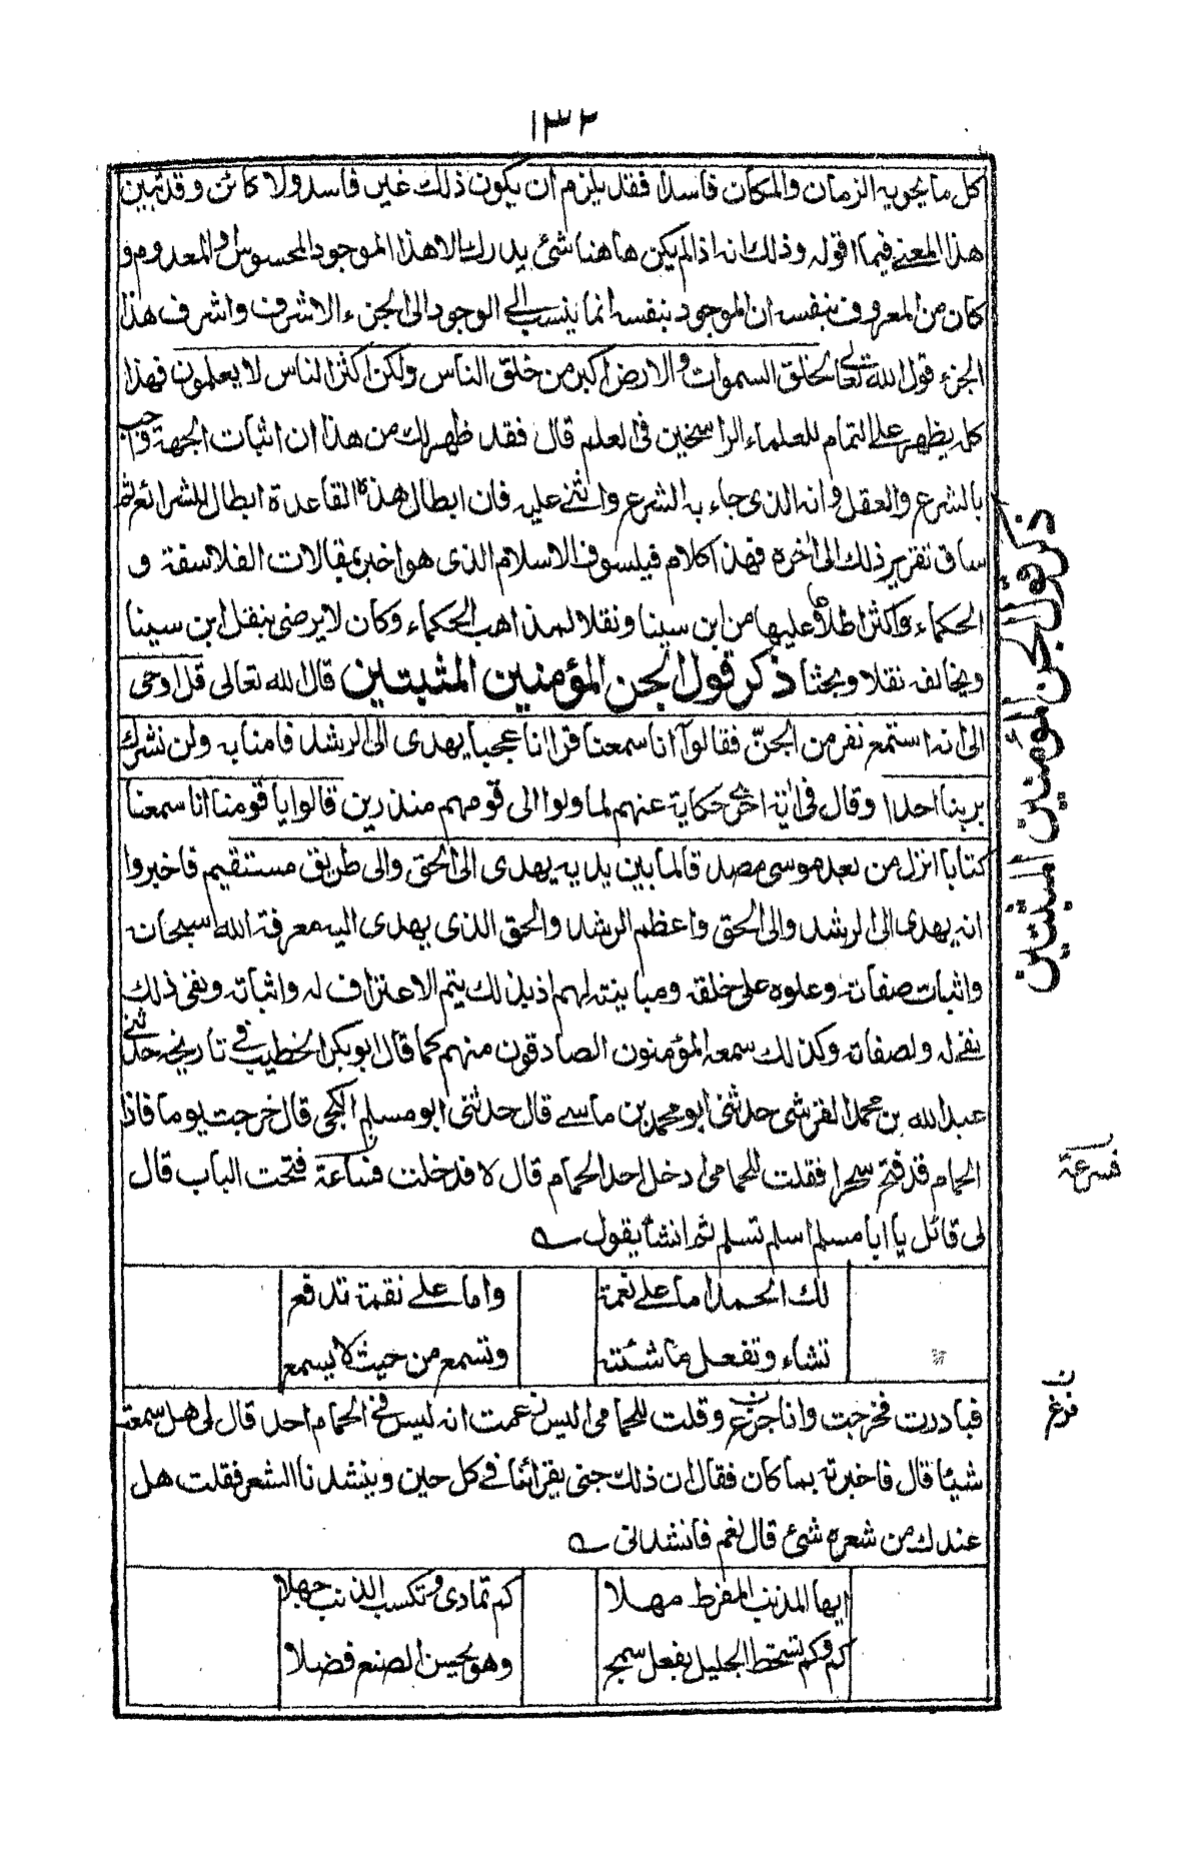 ١٣٢
كل ما يحويه الزمان والمكان فاسدا فقد يلزم ان يكون ذلك غير فاسد ولا كائن وقد تبين
هذا المعنى فيما اقوله وذلك انه اذ لم يكن هاهنا شئ يدرك الا هذا الموجود المحسوس والمعدوم و
كان من المعروف بنفسه ان الموجود بنفسه انما ينسب الى الوجود الى الجزء الاشرف واشرف هذا
الجزء قول الله تعالى لخلق السموات والارض اكبر من خلق الناس ولكن اكثر الناس لا يعلمون فهذا
كله يظهر على التمام للعلماء الراسخين فى العلم قال فقد ظهر لك من هذا ان اثبات الجهة واجب
بالشرع والعقل وانه الذى جاء به الشرع وانبنى عليه فان ابطال هذه القاعدة ابطال للشرائع ثم
ساق تقرير ذلك الى اخره فهذا كلام فيلسوف الاسلام الذى هو اخبر بمقالات الفلاسفة و
الحكماء واكثر اطلاعا عليها من ابن سينا ونقلا لمذاهب الحكماء وكان لا يرضى بنقل ابن سينا
ويخالفه نقلا وبحثا ذكر قول الجن المؤمنين المثبتين قال الله تعالى قل اوحى
الى انه استمع نفر من الجنّ فقالوآ انا سمعنا قرانا عجبا يهدى الى الرشد فامنا به ولن نشرك
بربنا احدا وقال فى اية اخرى حكاية عنهم لما ولوا الى قومهم منذرين قالوا يا قومنا انا سمعنا
كتابا انزل من بعد موسى مصدقا لما بين يديه يهدى الى الحق والى طريق مستقيم فاخبروا
انه يهدى الى الرشد والى الحق واعظم الرشد والحق الذى يهدى اليه معرفة الله سبحانه
واثبات صفاته وعلوه على خلقه ومباينته لهم اذ بذلك يتم الاعتراف له واثباته ونفى ذلك
نفى له ولصفاته وكذلك سمعه المؤمنون الصادقون منهم كما قال ابو بكر الخطيب فى تاريخه حدثنى
عبد الله بن محمد القرشى حدثنى ابو محمد بن ماسى قال حدثنى ابو مسلم الكجى قال خرجت يوما فاذا
الحمام قد فتح سحرا فقلت للحمامى ادخل احد الحمام قال لا فدخلت فساعة فتحت الباب قال
لى قائل يا ابا مسلم اسلم تسلم ثم انشأ يقول
لك الحمد اما على نعمة واما على نقمة تدفع
تشاء وتفعل ما شئته وتسمع من حيث لا يسمع
فبادرت فخرجت وانا جزع وقلت للحمامى اليس زعمت انه ليس فى الحمام احد قال لى هل سمعت
شيئا قال فاخبرته بما كان فقال ان ذلك جنى يقرائنا فى كل حين وينشدنا الشعر فقلت هل
عندك من شعره شئ قال نعم فانشدنى
ايها المذنب المفرط مهلا كم تمادى وتكسب الذنب جهلا
كم وكم تسخط الجليل بفعل سمج وهو يحسن الصنع فضلا
ذكر قول الجن المؤمنين المثبتين
فسرعة
ن
فزع